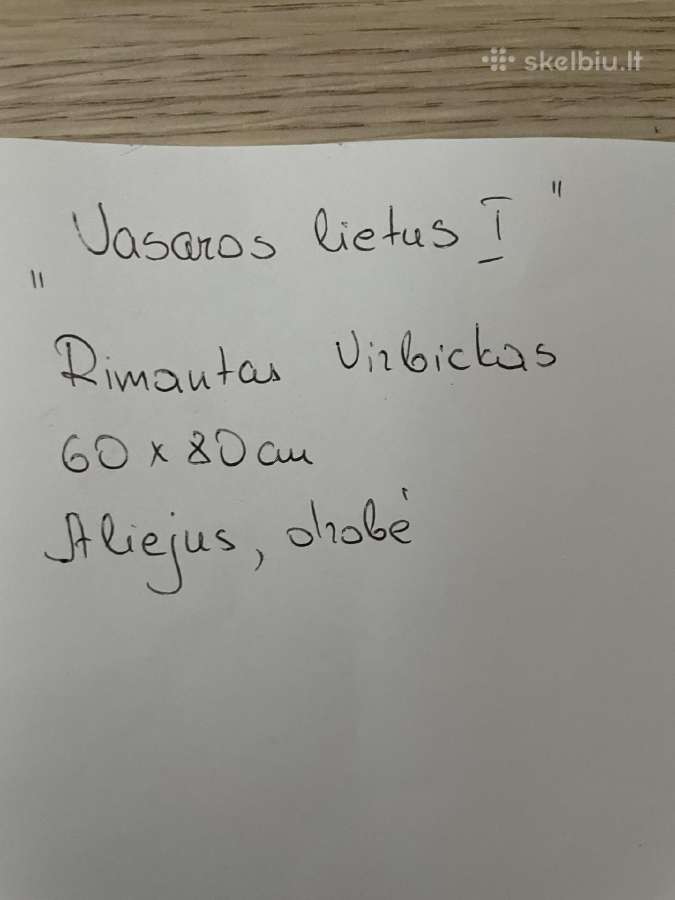 skelbiu.lt
"Vasaros lietus I"
Rimantas Virbickas
60 x 80 cm
Aliejus, drobė